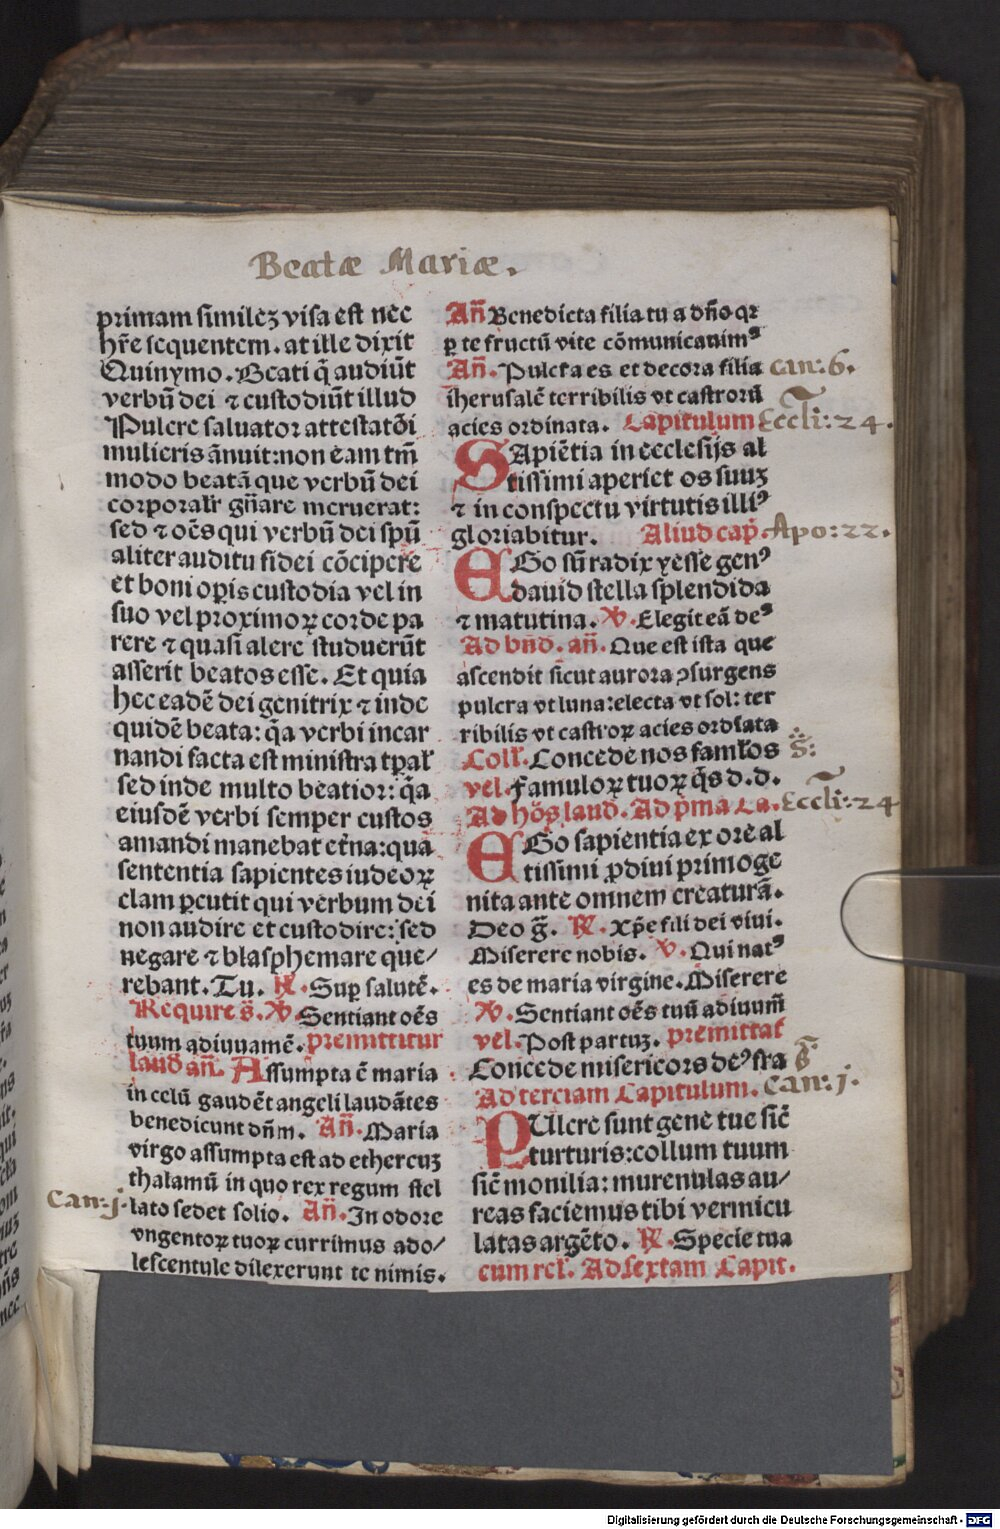 Beatæ Mariæ.
primam similez visa est nec
hr̄e sequentem. at ille dixit
Quinymo. Beati q̄ audiūt
verbū dei ⁊ custodiūt illud
Pulcre saluator attestatōi
mulieris ānuit: non eam tm̄
modo beatā que verbū dei
corporalr̄ gn̄are meruerat:
sed ⁊ oēs qui verbū dei spū
aliter auditu fidei cōcipere
et boni opis custodia vel in
suo vel proximoꝝ corde pa
rere ⁊ quasi alere studuerūt
asserit beatos esse. Et quia
hec eadē dei genitrix ⁊ inde
quidē beata: q̄a verbi incar
nandi facta est ministra tꝑal̄
sed inde multo beatior: q̄a
eiusdē verbi semper custos
amandi manebat et̄na: qua
sententia sapientes iudeoꝝ
clam ꝑcutit qui verbum dei
non audire et custodire: sed
negare ⁊ blasphemare que/
rebant. Tu. ℟. Suꝑ salutē.
Require s̄. ℣. Sentiant oēs
tuum adiuuamē. premittitur
laud añ. Assumpta ē maria
in celū gaudēt angeli laudātes
benedicunt dn̄m. Añ. Maria
virgo assumpta est ad ethereuz
thalamū in quo rex regum stel
Can: j. lato sedet solio. Añ. In odore
vngentoꝝ tuoꝝ currimus ado/
lescentule dilexerunt te nimis.
Añ Benedicta filia tu a dn̄o qr
ꝑ te fructū vite cōmunicauimꝰ
Añ. Pulcra es et decora filia can: 6.
iherusalē terribilis vt castrorū
acies ordinata. Capitulum Eccli: 24.
SApiētia in ecclesijs al
tissimi aperiet os suuz
⁊ in conspectu virtutis illiꝰ
gloriabitur. Aliud cap̄. Apo: 22.
EGo sū radix yesse genꝰ
dauid stella splendida
⁊ matutina. ℣. Elegit eā deꝰ
Ad bn̄d. añ. Que est ista que
ascendit sicut aurora ꝯsurgens
pulcra vt luna: electa vt sol: ter
ribilis vt castroꝝ acies ordiata
Coll̄. Concede nos faml̄os s̄:
vel. famuloꝝ tuoꝝ q̄s d. d.
Ad hōs laud. Ad p̄ma ca. Eccli: 24
EGo sapientia ex ore al
tissimi ꝓdiui primoge
nita ante omnem creaturā.
Deo g̅. ℟. Xp̄e fili dei viui.
Miserere nobis. ℣. Qui natꝰ
es de maria virgine. Miserere
℣. Sentiant oēs tuū adiuum̄
vel. Post partuz. premittat̄
Concede misericors deꝰ fra
Ad terciam Capitulum. Can: j.
PUlcre sunt gene tue sic̄
turturis: collum tuum
sic̄ monilia: murenulas au/
reas faciemus tibi vermicu
latas argēto. ℟. Specie tua
cum rel̄. Ad sextam Capit.
Digitalisierung gefördert durch die Deutsche Forschungsgemeinschaft - DFG